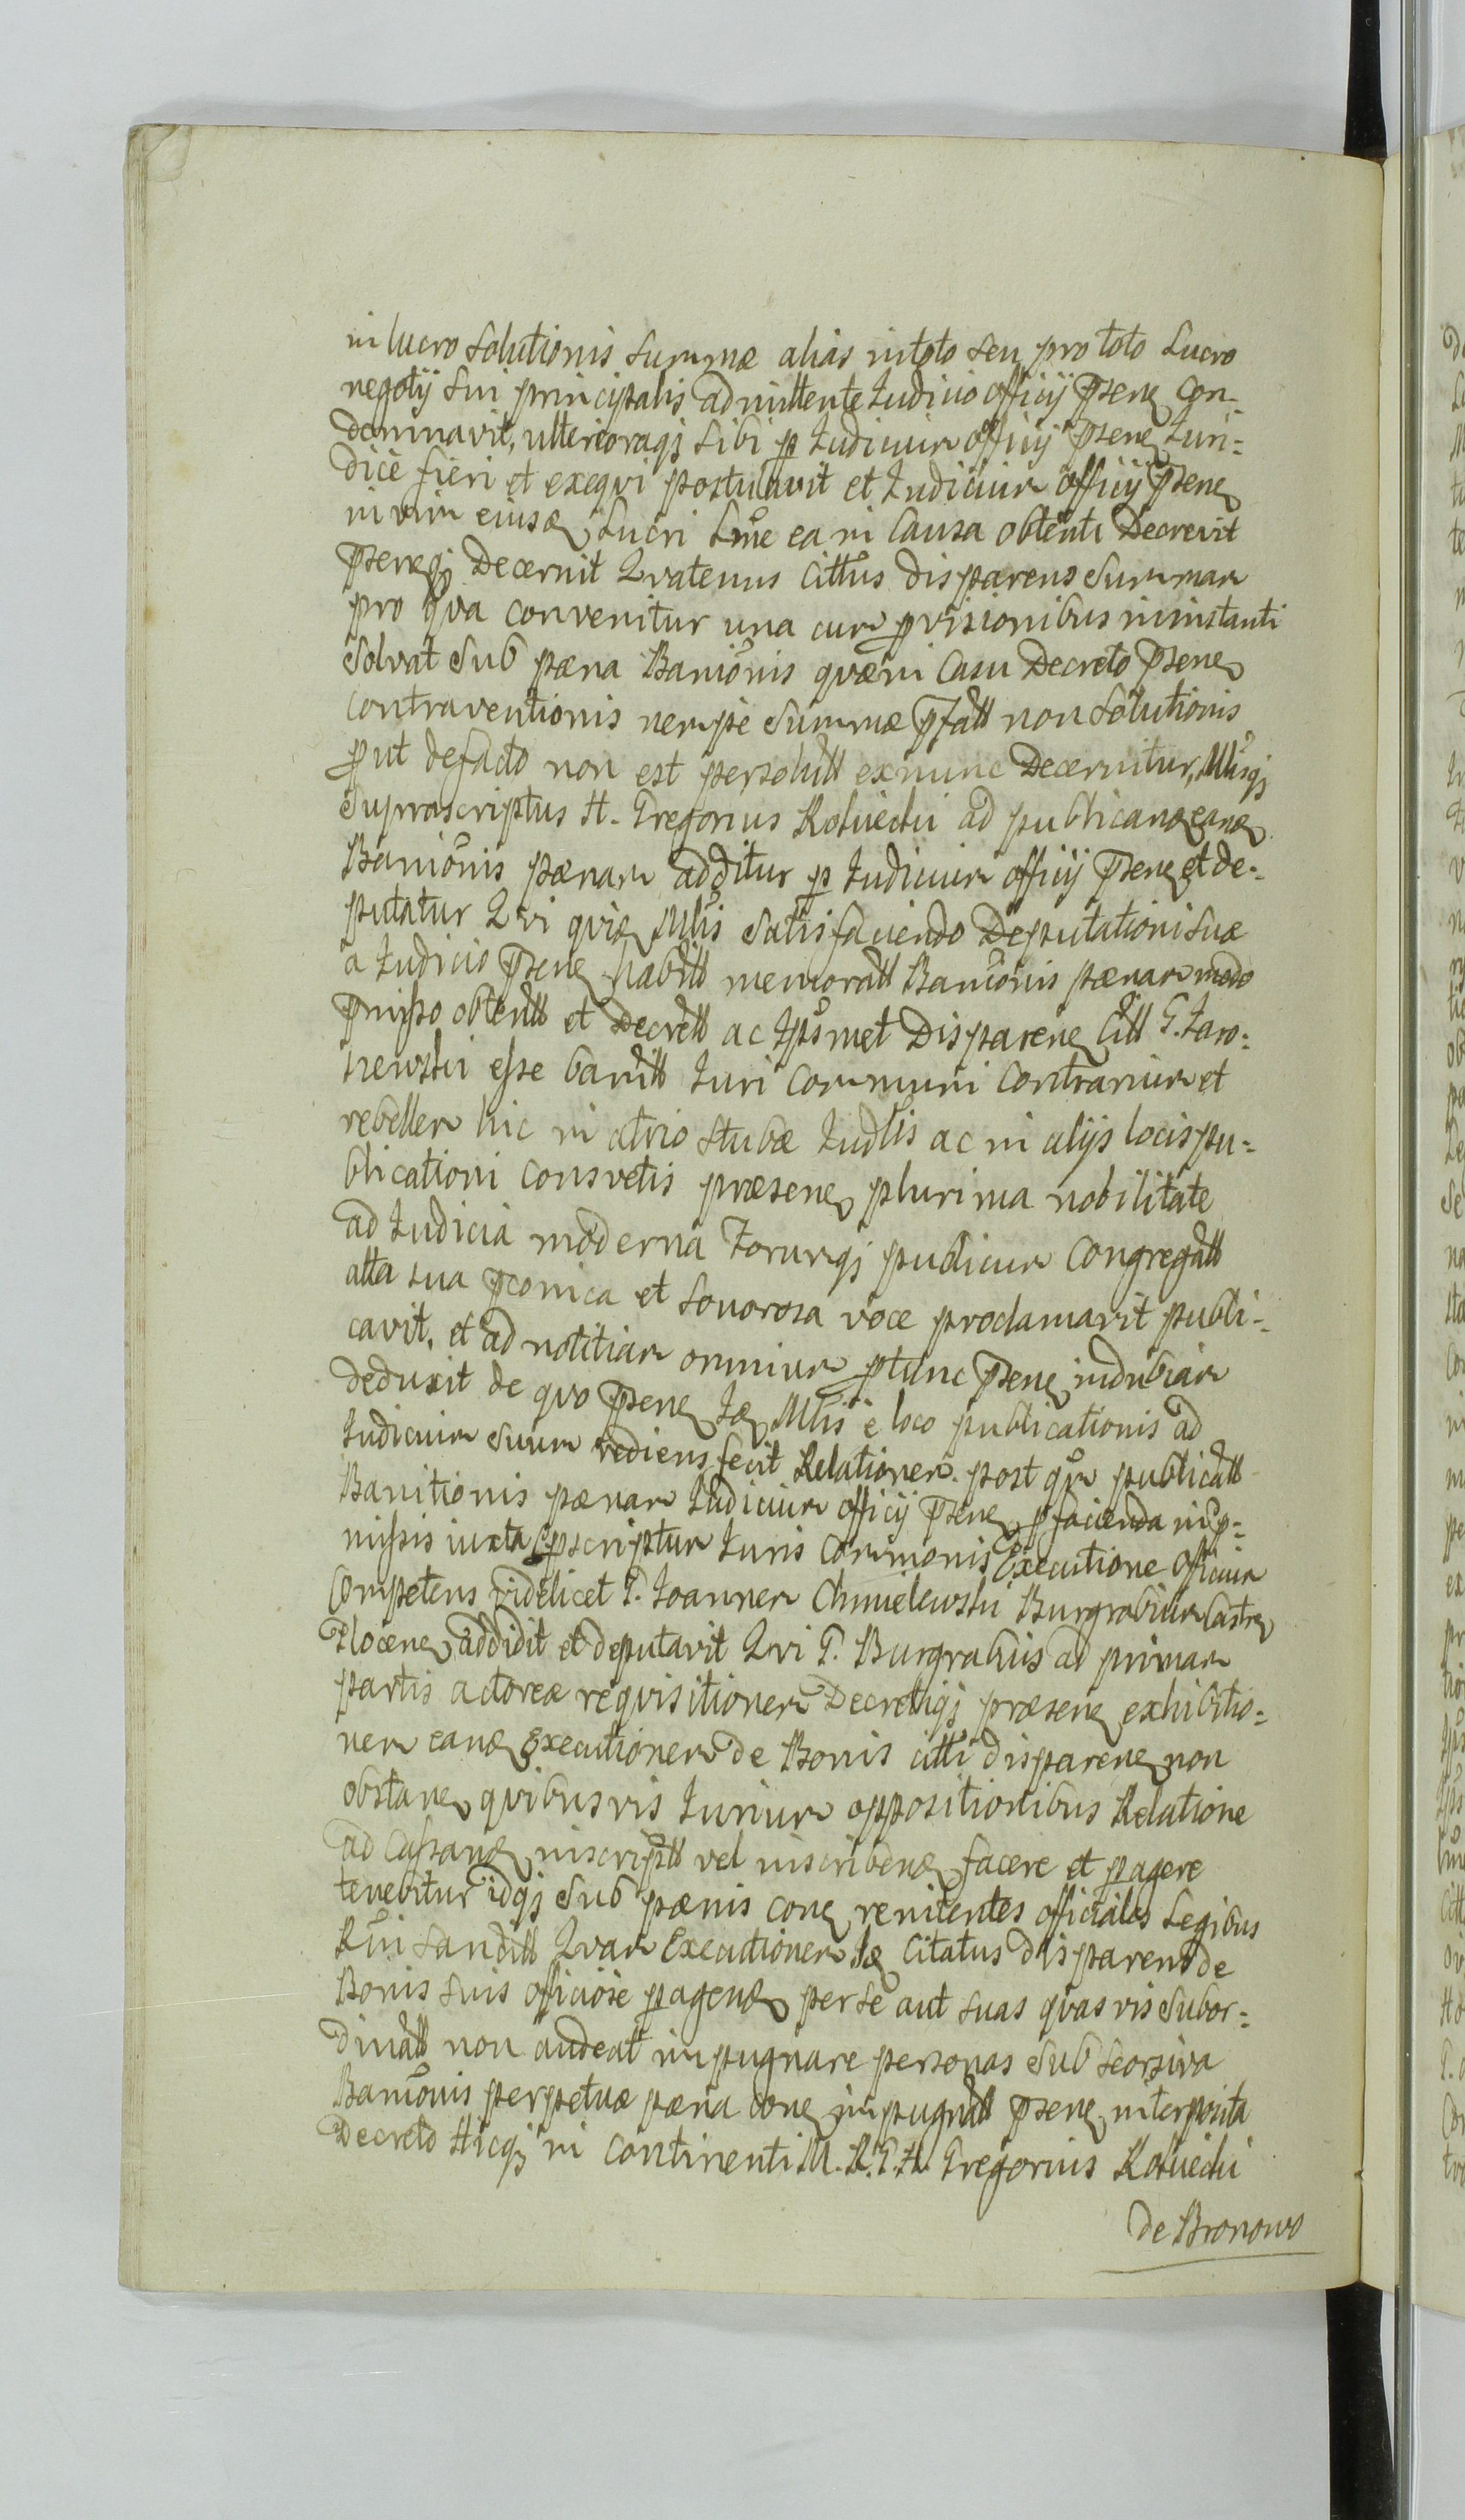 in lucro Solutionis Summæ alias in toto seu pro toto Lucro
negotij sui principalis admittente Iudicio officij pñsen Con-
demnavit, ulterioraqȝ sibi p Iudicium officij pñsen Iuri-
dice fieri et exeqvi postulavit et Iudicium officij pñsen
in vim eiusd Lucri Sme ea in Causa obtenti Decrevit
pñsenqȝ Decernit Qvatenus Cittus disparens Summam
pro qva convenitur una cum pvisionibus in instanti
Solvat Sub pæna Baniõnis qvæ in Casu Decreto pñsen
contraventionis nempe Summæ pfatt non Solutionis
put defacto non est persolutt exnunc Decernitur, Mlisqȝ
Suprascriptus H. Gregorius Koluichi ad publicand eand
Baniõnis pænam additur p Iudicium officij pñsen et de-
putatur Qvi qvid Mlis Satisfaciendo Deputationi Suæ
a Iudicio pñsen habitt memoratt Baniõnis pænam modo
pmisso obtentt et Decrett ac Ipsmet Disparen Citt G. Jaro-
newski esse banitt Iuri Communi Contrarium et
rebellem hic in atrio Stubæ Iudlis ac in alijs locis pu-
blicationi Consvetis præsen plurima nobilitate
ad Iudicia moderna Forumqȝ publicum Congregatt
alta sua pconica et Sonorosa voce proclamavit publi-
cavit, et ad notitiam omnium ptunc pñsen indubiam
deduxit de qvo pñsen Id Mlis e loco publicationis ad
Iudicium Suum rediens fecit Relationem. post qvm publicatt
Banitionis pænam Iudicium officij pñsen p facienda in p-
missis iuxta pscriptum Iuris Communis Executione Officium
Competens videlicet G. Joannem Chmielewski Burgrabium Castren
Plocen addidit et deputavit Qvi G. Burgrabius ad primam
partis actoreæ reqvisitionem Decretiqȝ præsen exhibitio-
nem eand Executionem de Bonis citti disparen non
obstan qvibusvis Iurium oppositionibus Relatione
ad Cassand inscriptt vel inscribend facere et pagere
tenebitur idqȝ Sub pænis con renitentes officiales Legibus
Rni Sancitt Qvam Executionem Id Citatus disparens de
Bonis suis officiose pagend per se aut suas qvasvis Subor-
dinatt non audeat impugnare personas Sub Seorsiva
Baniõnis perpetuæ pæna con impugnatt pñsen interposita
Decreto Hicqȝ in Continenti M. R. G. H. Gregorius Koluichi
de Bronowo